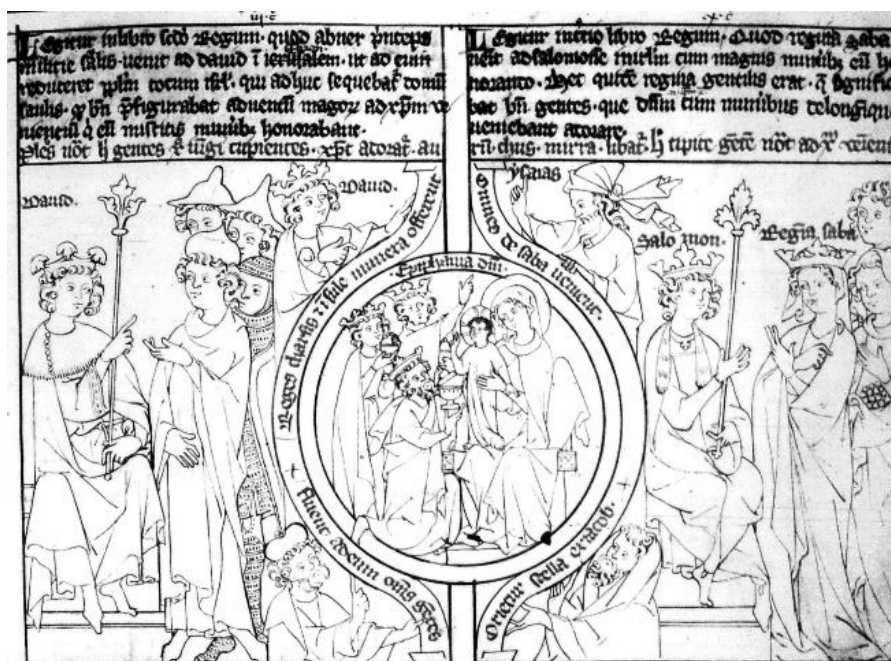 Legitur in libro scdo Regum. quod abner pnceps
militie saulis. venit ad david i ierusalem. ut ad eum
reduceret plm totum isrl. qui adhuc sequebat domu
saulis. q bn pfigurabat adventu magor ad xpm ve
q eu misticis munib honorabant.
Ples not h gentes x iungi cupientes. xpc adorat. au
Legitur libro Regum. Quod regina Saba
venit ad salomone cum magnis munib eu ho
norando. Hec quide regina gentilis erat. q signifi
bat bn gentes. que dnm cum munibus de longiqu
veniebant adorare.
thus. mirra. libat. h tipice gete not ad x
David.
David.
ysaias
Salomon.
Regina saba
Reges tharsis insule munera offerent
Omnes de saba venient.
Epiphania dni.
Fluent ad eum oms gentes
Orietur stella ex iacob.